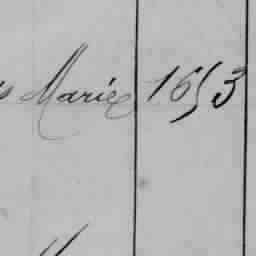 Marie 1653